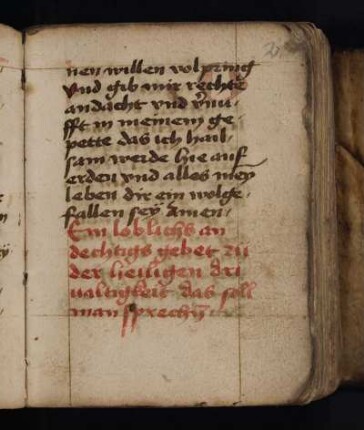 nen willen volpring
vnd gib mir rechte
andacht vnd v̄nu-
fft in meinem ge-
pette das ich hail
sam werde hie auf
erden vnd alles mey
leben dir ein wolge-
fallen seÿ Amen
Ein loblichs an
dechtigs gebet zu
der heiligen dri
ualtigkeit das soll
man sprechn̄